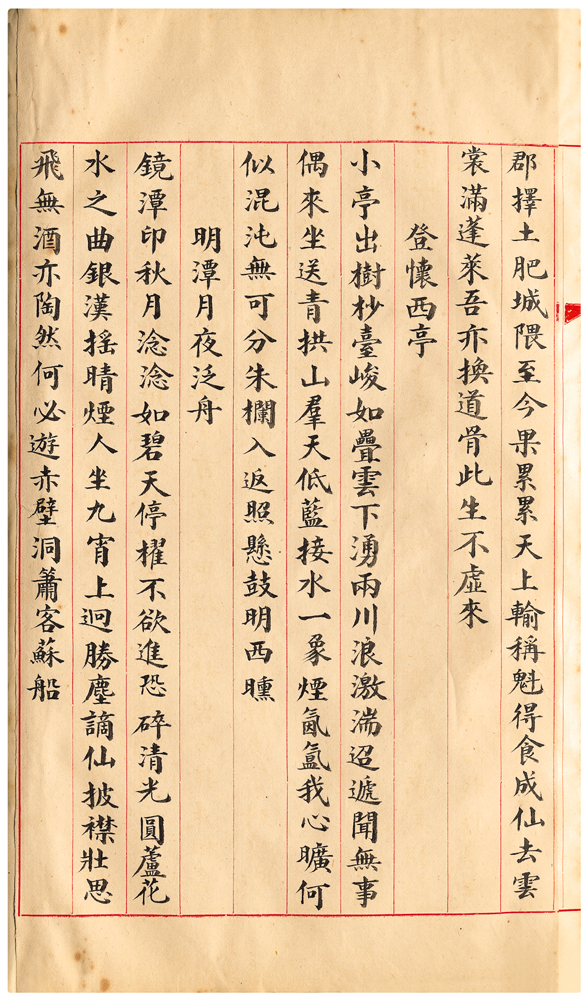 郡擇土肥城隈至今果累累天上輸稱魁得食成仙去雲
裳滿蓬萊吾亦換道骨此生不虛來
登懷西亭
小亭出樹杪臺峻如疊雲下湧兩川浪激湍迢遞聞無事
偶來坐送青拱山羣天低藍接水一象煙氤氳我心曠何
似混沌無可分朱欄入返照懸鼓明西曛
明潭月夜泛舟
鏡潭印秋月淰淰如碧天停櫂不欲進恐碎清光圓蘆花
水之曲銀漢搖晴煙人坐九宵上迥勝塵謫仙披襟壯思
飛無酒亦陶然何必遊赤壁洞簫客蘇船